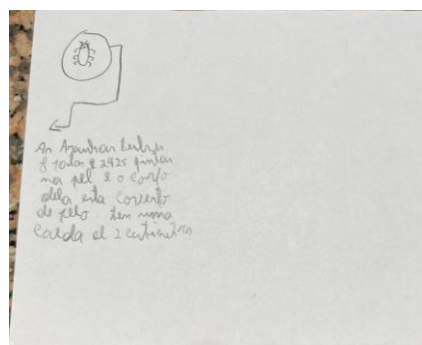 An Aranhas
8 patas e 2925 pintas
na pel e o corpo
dela esta coverto
de pelo. tem uma
cauda el 2 centimetros